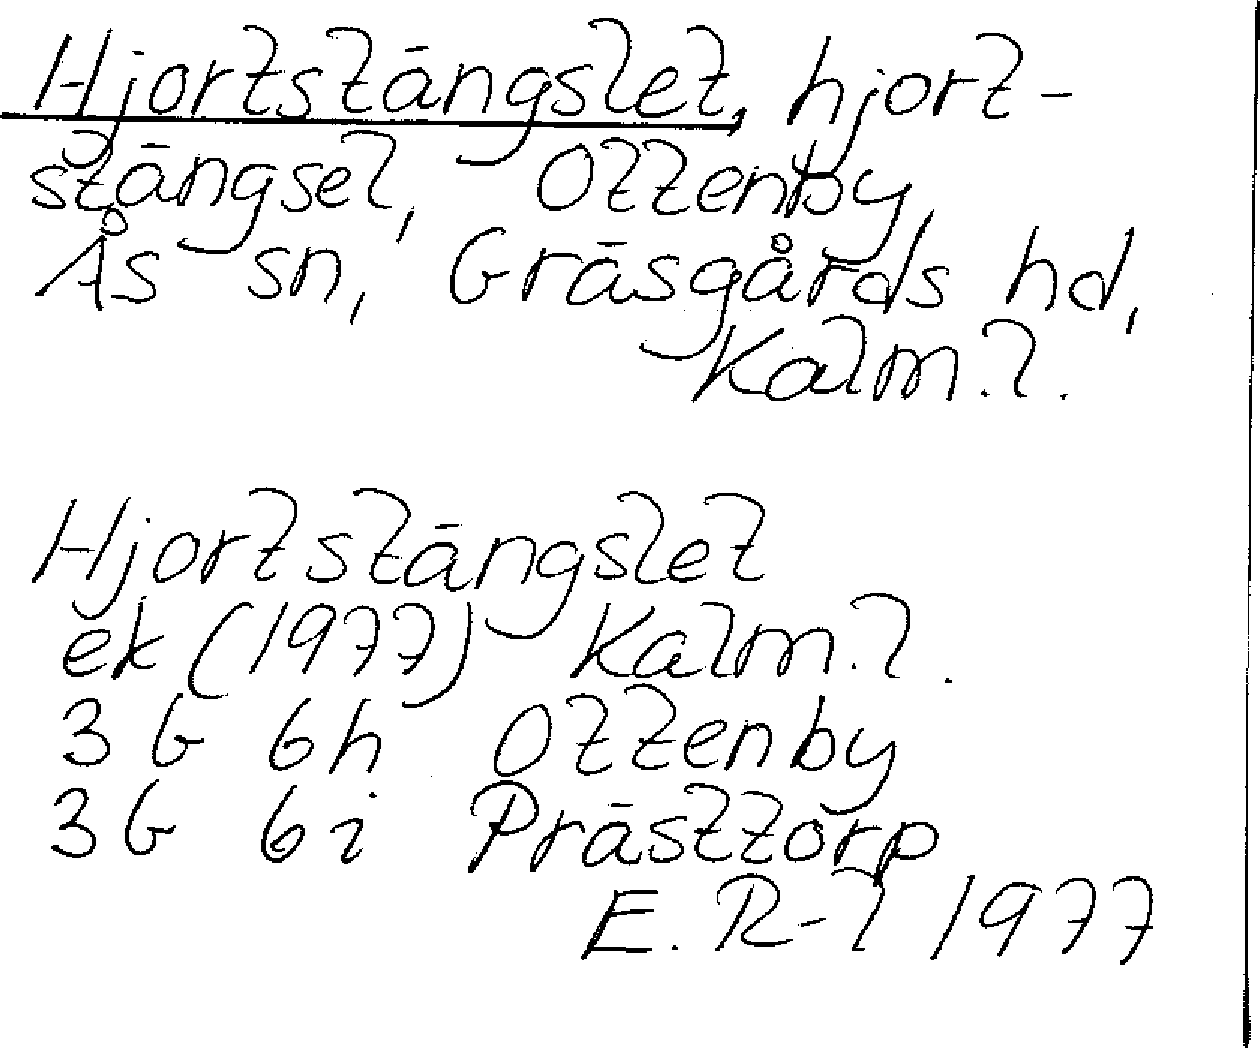 Hjortstängslet, hjort-
stängsel, Ottenby,
Ås sn, Gräsgårds hd,
Kalm.l.
Hjortstängslet
ek (1977) Kalm.l.
3G 6h Ottenby
3G 6i Prästtorp
E. R-l 1977